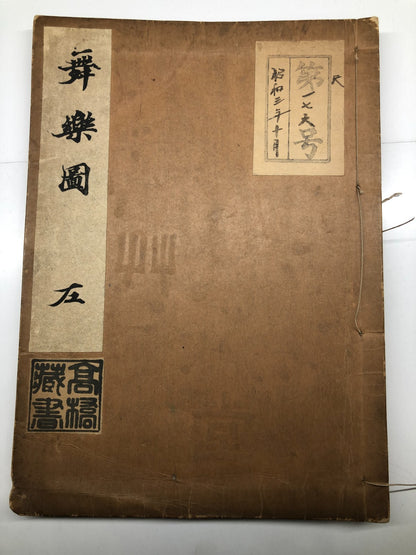 舞樂圖 左
第一七六号
昭和三年十月
尺
高橋
藏書